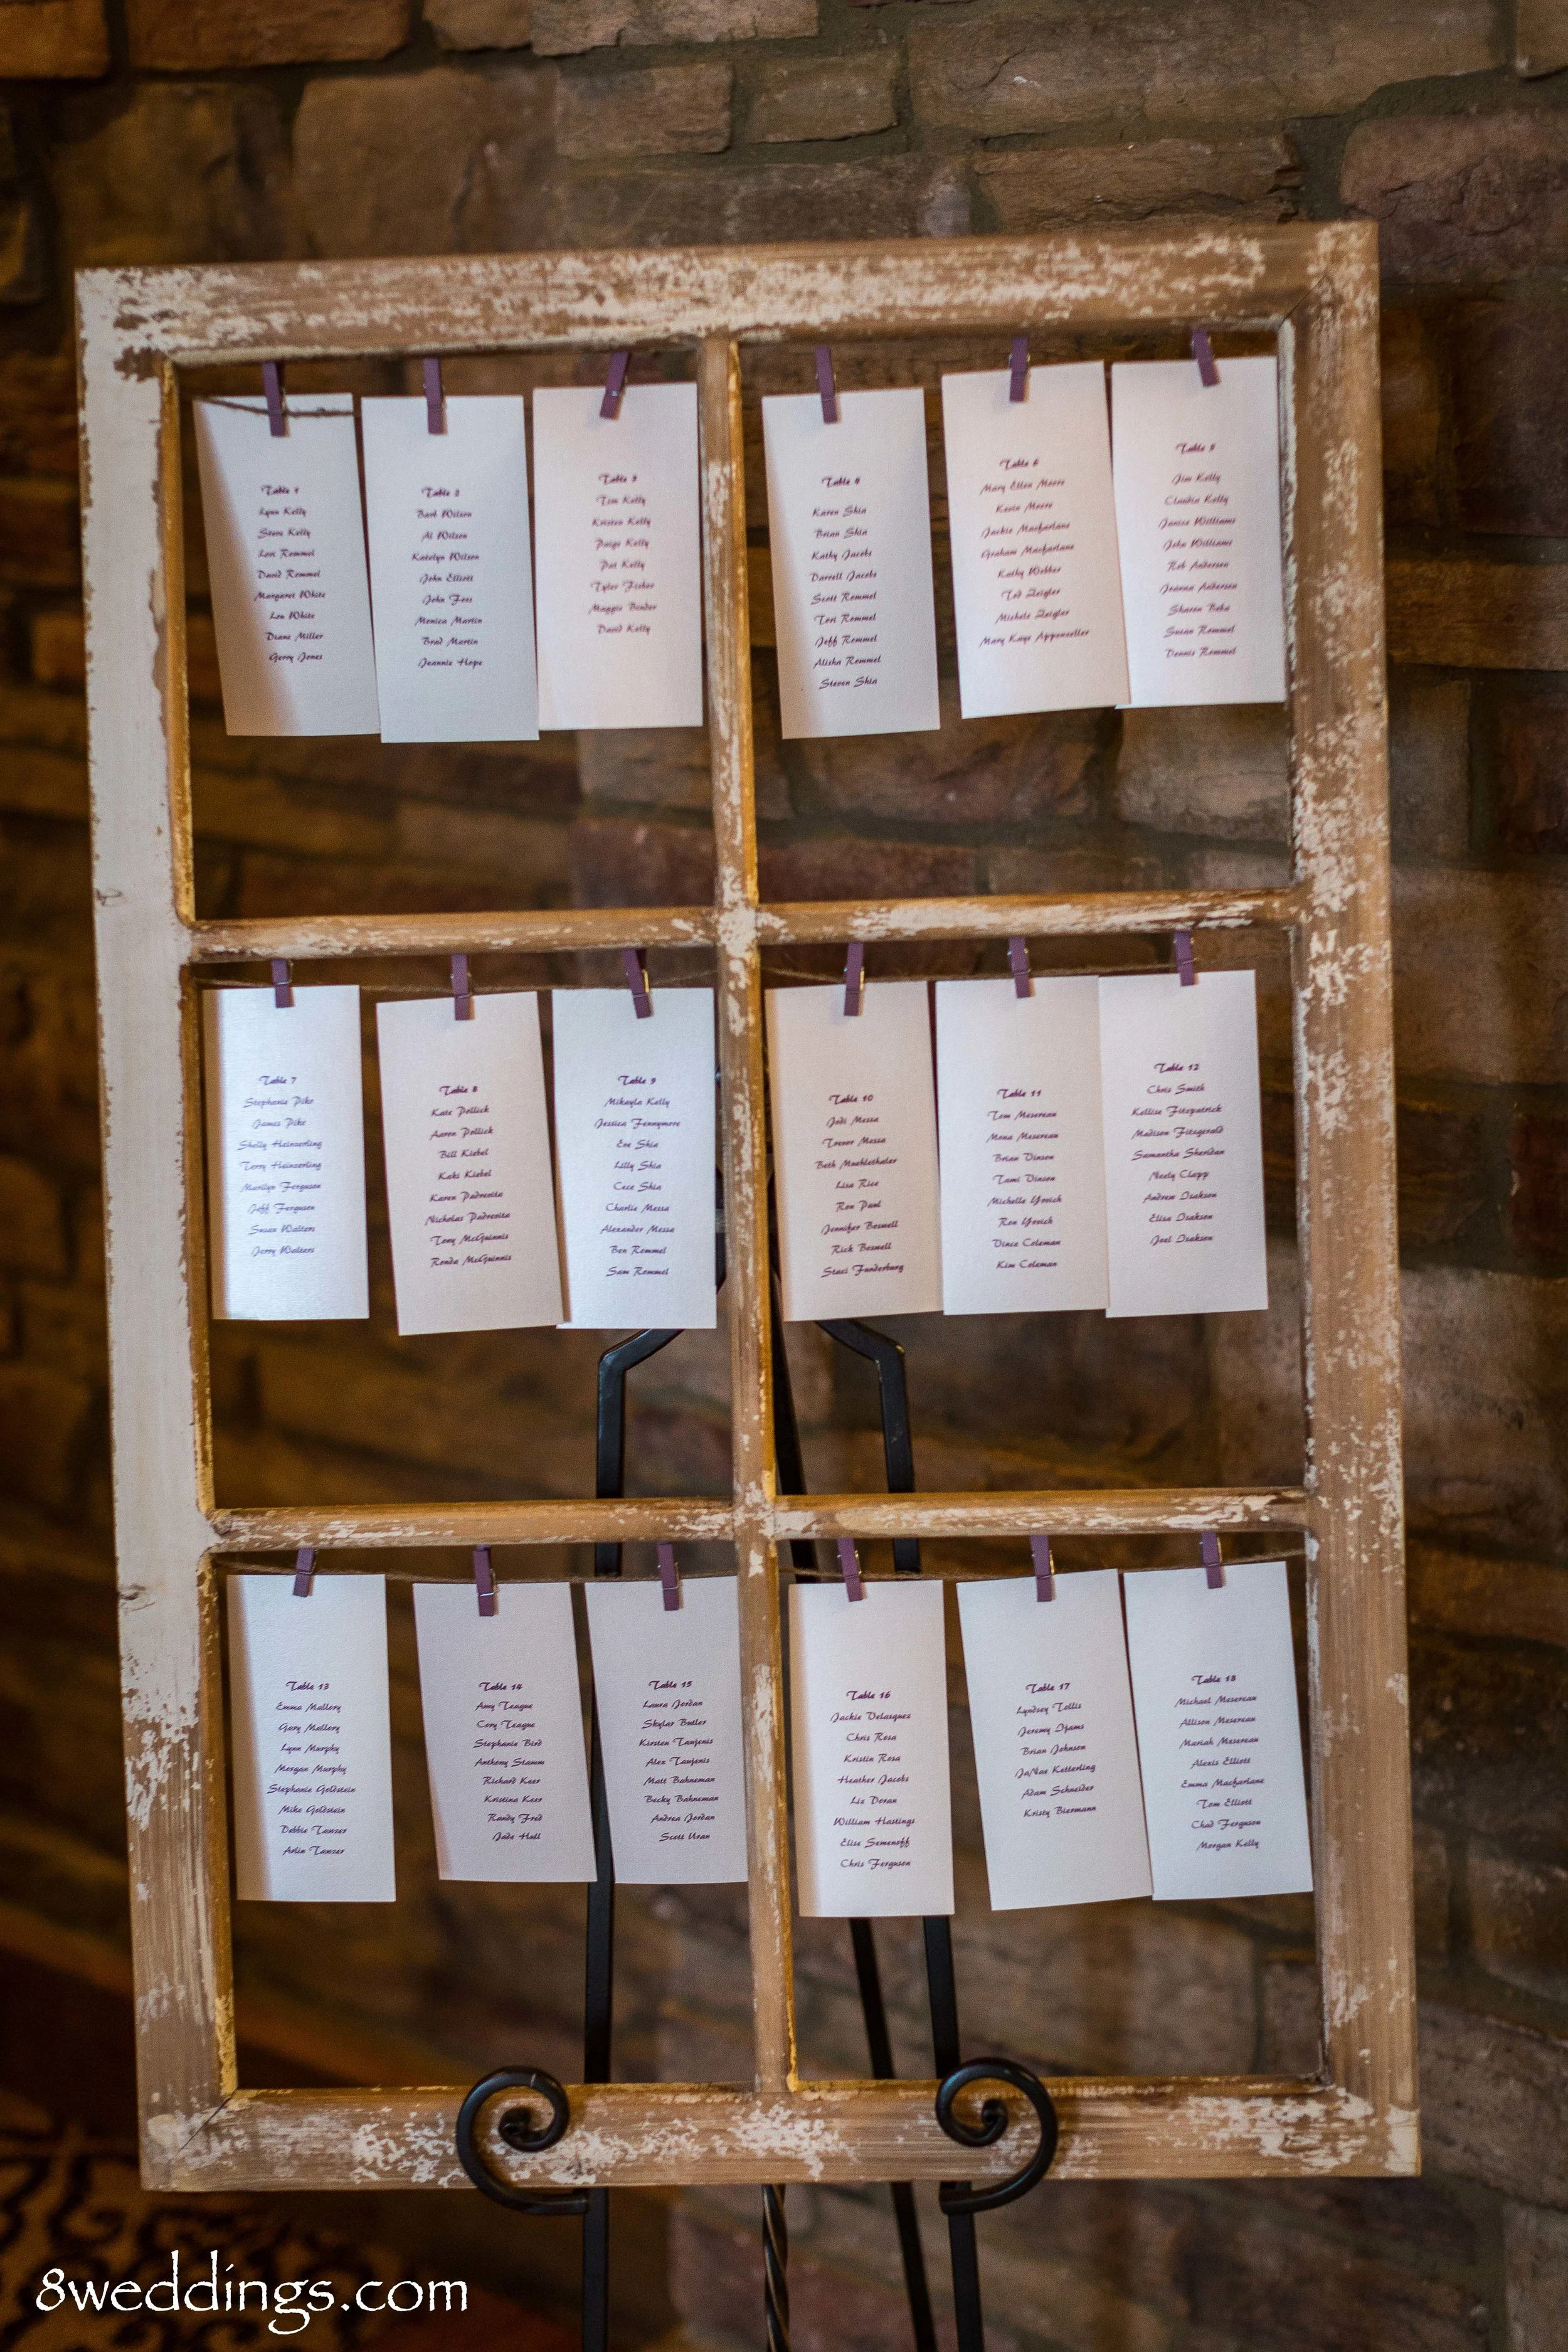 Table 1
Lynn Kelly
Steve Kelly
Lori Rommel
David Rommel
Margaret White
Lou White
Diane Miller
Gerry Jones
Table 2
Barb Wilson
Al Wilson
Katelyn Wilson
John Elliott
John Foss
Monica Martin
Brad Martin
Jeannie Hope
Table 3
Tim Kelly
Kristen Kelly
Paige Kelly
Pat Kelly
Tyler Fisher
Maggie Binder
David Kelly
Table 4
Karen Shia
Brian Shia
Kathy Jacobs
Darrell Jacobs
Scott Rommel
Tori Rommel
Jeff Rommel
Alisha Rommel
Steven Shia
Table 6
Mary Ellen Moore
Kevin Moore
Jackie Macfarlane
Graham Macfarlane
Kathy Webber
Ted Zeigler
Michele Zeigler
Mary Kaye Appenzeller
Table 5
Jim Kelly
Claudia Kelly
Janice Williams
John Williams
Rob Anderson
Jeanna Anderson
Sharon Beba
Susan Rommel
Dennis Rommel
Table 7
Stephanie Pike
James Pike
Shelly Heinzerling
Terry Heinzerling
Marilyn Ferguson
Jeff Ferguson
Susan Walters
Jerry Walters
Table 8
Kate Pollick
Aaron Pollick
Bill Kiebel
Kaki Kiebel
Karen Padrevita
Nicholas Padrevita
Tony McGuinnis
Ronda McGuinnis
Table 9
Mikayla Kelly
Jessica Fennymore
Eve Shia
Lilly Shia
Cece Shia
Charlie Messa
Alexander Messa
Ben Rommel
Sam Rommel
Table 10
Jodi Messa
Trevor Messa
Beth Muehlethaler
Lisa Rice
Ron Paul
Jennifer Boswell
Rick Boswell
Staci Funderburg
Table 11
Tom Mesereau
Mona Mesereau
Brian Vinson
Tami Vinson
Michelle Yovich
Ron Yovich
Vince Coleman
Kim Coleman
Table 12
Chris Smith
Kallise Fitzpatrick
Madison Fitzgerald
Samantha Sheridan
Neely Clapp
Andrew Isakson
Elisa Isakson
Joel Isakson
Table 13
Emma Mallory
Gary Mallory
Lynn Murphy
Morgan Murphy
Stephanie Goldstein
Mike Goldstein
Debbie Tawzer
Arlin Tawzer
Table 14
Amy Teague
Cory Teague
Stephanie Bird
Anthony Stamm
Richard Keer
Kristina Keer
Randy Fred
Jade Hall
Table 15
Laura Jordan
Skylar Butler
Kirsten Taujenis
Alex Taujenis
Matt Bahneman
Becky Bahneman
Andrea Jordan
Scott Uran
Table 16
Jackie Velasquez
Chris Rosa
Kristin Rosa
Heather Jacobs
Liz Doran
William Hastings
Elise Semenoff
Chris Ferguson
Table 17
Lyndsey Tollis
Jeremy Ijams
Brian Johnson
JaNae Ketterling
Adam Schneider
Kristy Biermann
Table 18
Michael Mesereau
Allison Mesereau
Mariah Mesereau
Alexis Elliott
Emma Macfarlane
Tom Elliott
Chad Ferguson
Morgan Kelly
8weddings.com